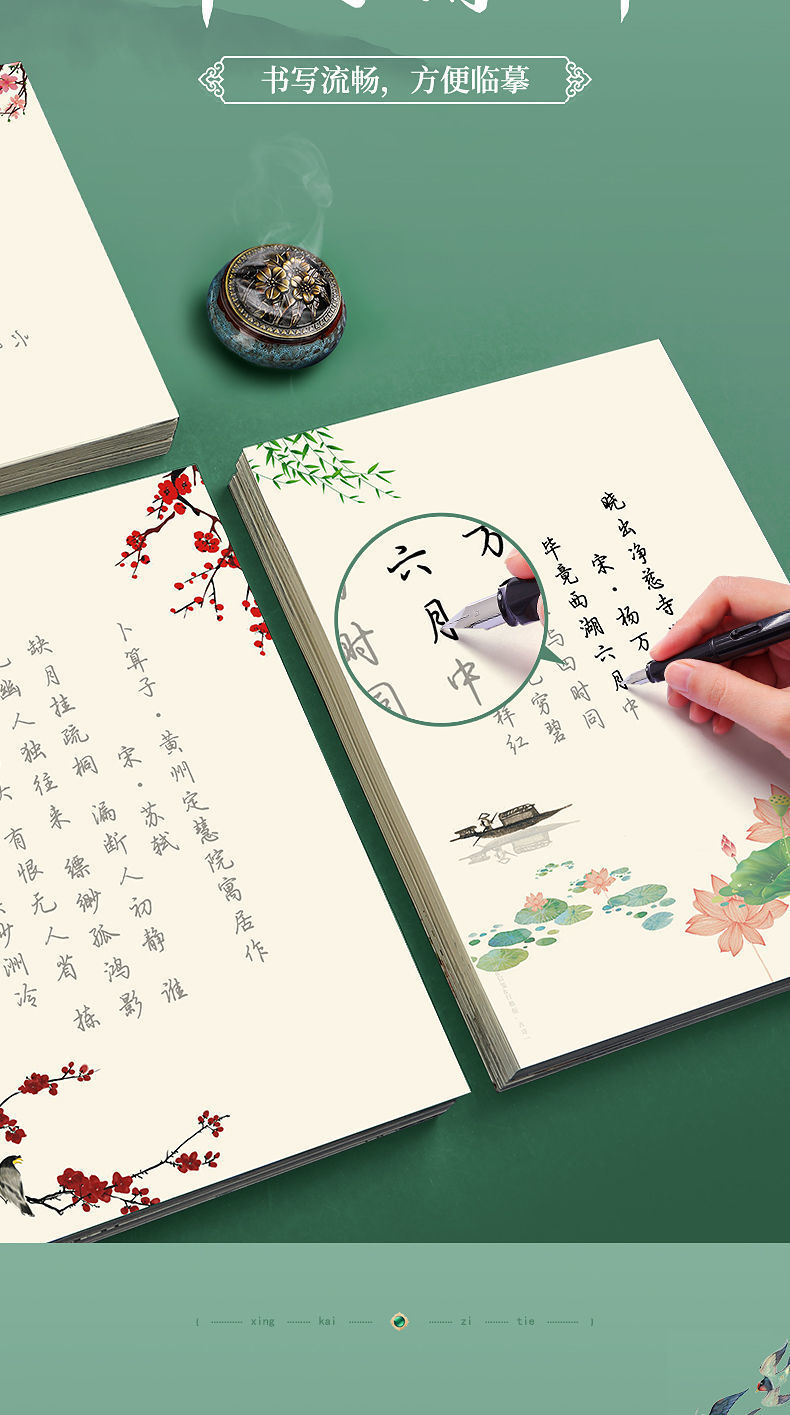 书写流畅，方便临摹
小
晓出净慈寺
宋·杨万
毕竟西湖六月中
与四时同
穷碧
样红
万
六月中
时同
卜算子·黄州定慧院寓居作
宋·苏轼
缺月挂疏桐漏断人初静谁
幽人独往来缥缈孤鸿影
头有恨无人省拣
沙洲冷
xing kai zi tie